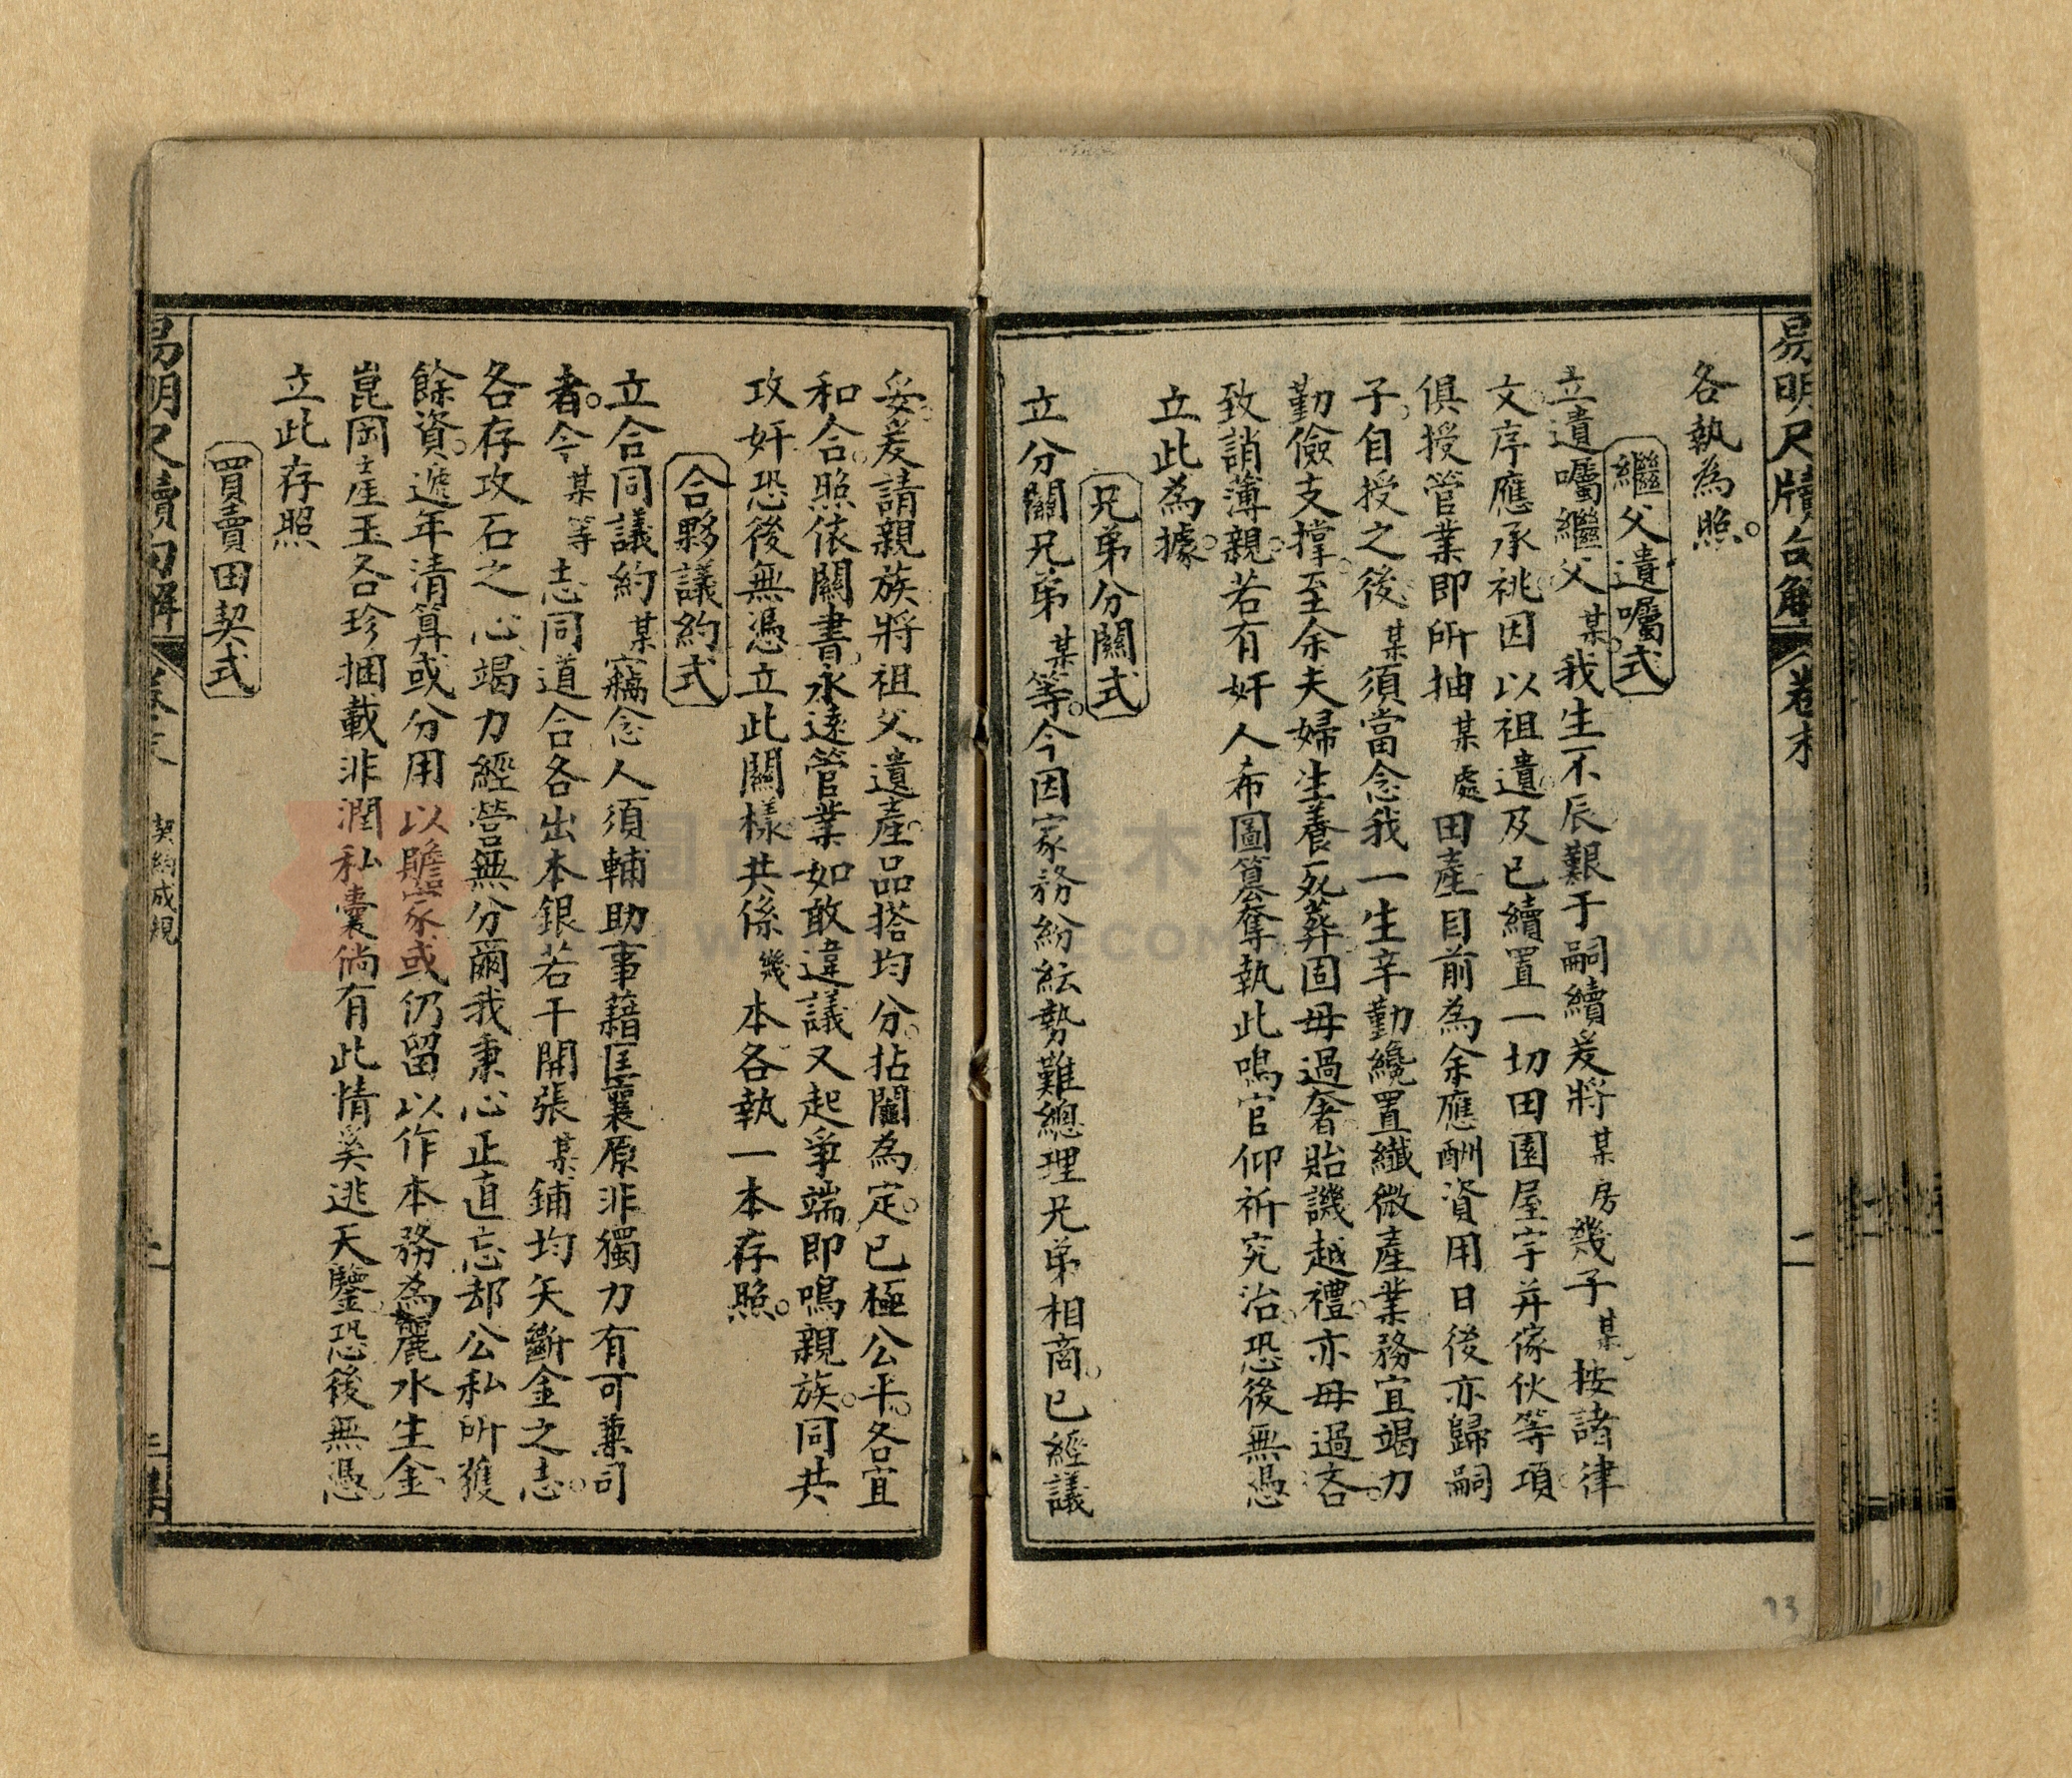 易明尺牘句解 卷末 二
各執為照。
繼父遺囑式
立遺囑繼父某。我生不辰艱于嗣續爰將某房幾子某。按諸律
文。序應承祧。因以祖遺及已續置一切田園屋宇并傢伙等項。
俱授管業即所抽某處田產目前為余應酬資用日後亦歸嗣
子。自授之後。某須當念我一生辛勤纔置纖微產業務宜竭力
勤儉支撐。至余夫婦生養死葬固毋過奢。貽譏越禮。亦毋過吝。
致誚薄親。若有奸人希圖篡奪執此鳴官仰祈究治。恐後無憑
立此為據。
兄弟分關式
立分關兄弟某等。今因家務紛紜勢難總理兄弟相商。已經議
妥。爰請親族將祖父遺產。品搭均分。拈鬮為定。已極公平。各宜
和合。照依關書。永遠管業如敢違議又起爭端即鳴親族。同共
攻奸恐後無憑立此關樣共係幾本各執一本存照。
合夥議約式
立合同議約某竊念人須輔助事藉匡襄原非獨力有可兼司
者。今某等志同道合各出本銀若干開張某鋪均矢斷金之志。
各存攻石之心竭力經營無分爾我秉心正直忘却公私所獲
餘資。遞年清算或分用以贍家或仍留以作本務為麗水生金。
崑岡產玉各珍捆載非潤私囊倘有此情奚逃天鑒。恐後無憑。
立此存照
買賣田契式
易明尺牘句解 卷末 契約成規 三集
73